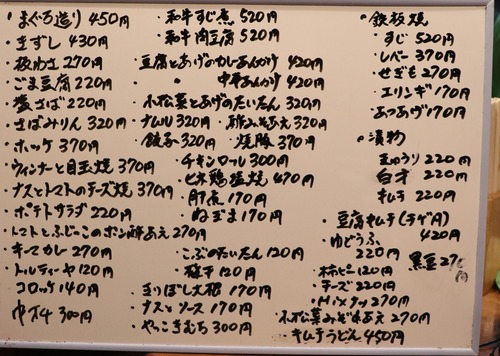 ・まぐろ造り 450円
・きずし 430円
・板わさ 270円
・ごま豆腐 220円
・塩さば 220円
・さばみりん 320円
・ホッケ 370円
・ウィンナーと目玉焼 370円
・ナスとトマトのチーズ焼 370円
・ポテトサラダ 220円
・トマトとぶっこのポン酢あえ 270円
・キーマカレー 270円
・トルティーヤ 120円
コロッケ 140円
300円
・和牛すじ煮 520円
・和牛肉豆腐 520円
・豆腐とあげのカレーあんかけ 420円
・〃 中華あんかけ 420円
・小松菜とあげのたいたん 320円
・ナムル 320円
・酢みそあえ 320円
・餃子 320円
・焼豚 370円
・チキンロール 300円
・ヒネ鶏塩焼 470円
・肝煮 170円
・ねぎま 170円
・こぶのたいたん 120円
・梅干 120円
・切りぼし大根 170円
・ナスとソース 170円
・やっこきむち 300円
・鉄板焼
・すじ 520円
・レバー 370円
・せぎも 270円
・エリンギ 170円
・あつあげ 170円
・漬物
きゅうり 220円
白才 220円
キムチ 220円
・豆腐キムチ(チゲ風) 420円
・ゆどうふ 220円
黒豆 270円
・柿ピー 120円
・チーズ 220円
・Mixナッツ 270円
・小松菜みぞれあえ 270円
・キムチうどん 450円